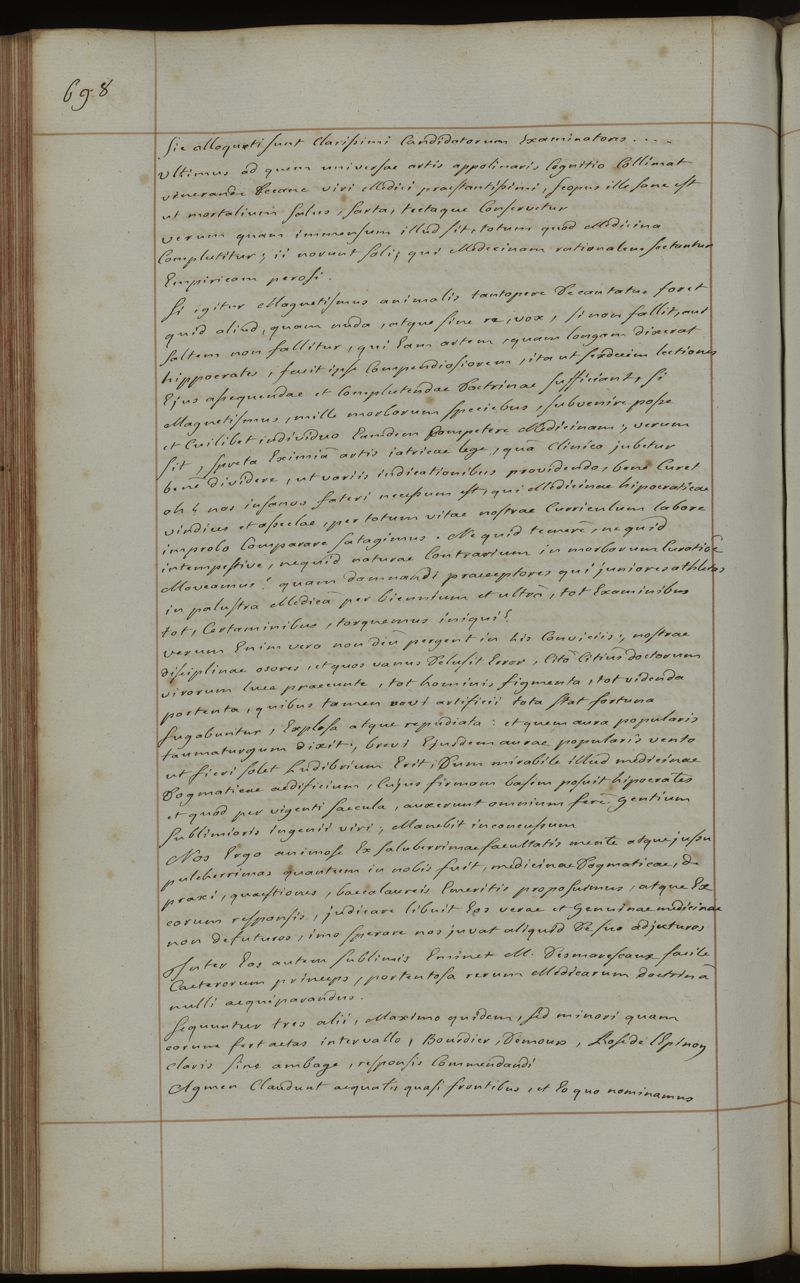 698
Sic alloquuti sunt Clarissimi Candidatorum Examinatores . . . .
Ultimus ad quem universae artis appolinaris Cognitio Collimat
venerande Decane viri Medici praestantissimi, scopus ille sane est
ut mortalium salus, sarta, tectaque Conservetur
verum quam immensum illud sit, totum quod Medicina
Complectitur; ii norunt soli, qui Medicinam rationalem sectantur
Empiricam perosi.
Si igitur Magnetismus animalis tantopere Decantatus foret
quid aliud, quam nuda, atque sine re, vox, si non fallit, aut
saltem non fallitur, qui Eam artem, quam longam dixerat
hippocrates, fecit ipse Compendiosiorem, ita ut sexdecim lectiones
Ejus assequendae et Complectendae Doctrinae sufficiant, si
Magnetismus, mille morborum speciebus, subvenire posse
et Cuilibet individuo Eamdem Competere Medicinam; verum
sit, spreta Eximiâ artis iatricae lege, quâ Clinico jubetur
benè dividere, ut variis indicationibus providendo, benè Curet
oh! nos insanos fateri necessum est, qui Medicinae hipocraticae
vindices et asseclae, per totum vitae nostrae Curriculum labore
improbo Comparare satagimus. Ne quid temerè, ne quid
intempestive, nequid naturae Contrarium in morborum Curatiõe
Moveamus! quam damnandi praeceptores qui juniores athletas
in palustra Medicâ per biennium et ultrà, tot Examinibus
tot, Certaminibus, torquemus iniqui!
verum Enim vero non diù pergent in his Conviciis; nostrae
disciplinae osores, et quos vanus Delusit Error, Citò Citius doctorum
virorum luce praeeunte, tot hominis figmenta, tot videnda
portenta, quibus tamen novi artificii tota stat fortuna
fugabuntur, Explosa atque repudiata: et quem aura popularis
taumaturgum dixit, brevi Ejusdem aurae popularis vento
ut fieri solet Ludibrium Erit, Dum mirabile illud medicinae
Dogmaticae aedificium, Cujus firmam basim posuit hipocrates
et quod per vigenti saecula, auxerunt omnium ferè gentium
sublimioris ingenii viri; Manebit inconcussum
Nos Ergo animose Ex saluberrimae facultatis mente atque jussu
pulcherrimas quantum in nobis fuit, medicinae Dogmaticae, de
praxi, quaestiones, baccalaureis Emeritis proposuimus, atque Ex
eorum responsis, judicare libuit Eos verae et Genuinae medicinae
non defuturos, imo sperare nos juvat aliquid De suo adjecturos
Inter Eos autem sublimis Eminet M. Desmarescaux facile
Caeterorum princeps, portentosa rerum Medicarum Doctrinâ
nulli aequiparandus.
sequuntur tres alii, Maximo quidem, sed minori quam
eorum fert aetas intervallo, Bourdier, Demours, de lEpinoy
claris sine ambage, responsis Commendandi
Agmen Claudunt aequatis quasi frontibus, et Eo quo nominamus